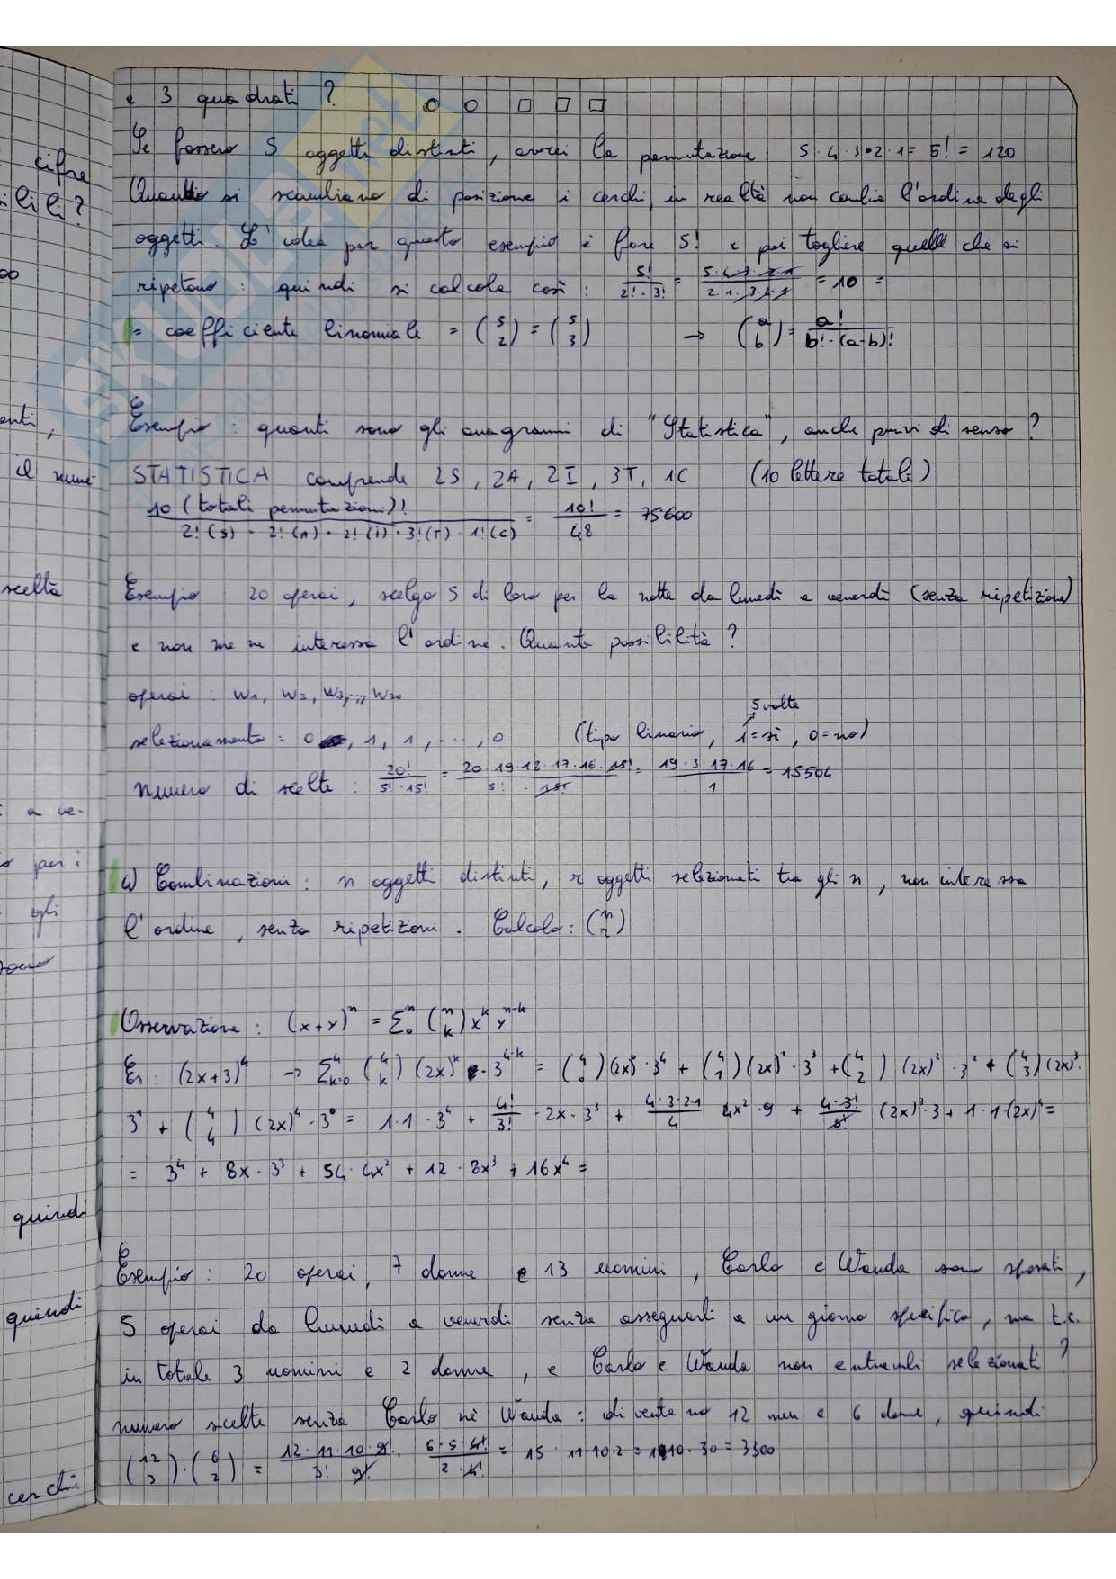 e 3 quadrati ?
Se fossero 5 oggetti distinti, avrei la permutazione 5·4·3·2·1 = 5! = 120
Quando si scambiano di posizione i cerchi, in realtà non cambia l'ordine degli
oggetti. L'idea per questo esempio è fare 5! e poi togliere quelle che si
ripetono : quindi si calcola così : 5!/(2!·3!) = (5·4·3·2·1)/(2·1·3·2·1) = 10 =
= coefficiente binomiale = (5 2) = (5 3) → (a b) = a!/(b!·(a-b)!)
Esempio : quanti sono gli anagrammi di "Statistica", anche privi di senso ?
STATISTICA comprende 2S, 2A, 2I, 3T, 1C (10 lettere totali)
10 (totali permutazioni)!/(2!(S) · 2!(A) · 2!(I) · 3!(T) · 1!(C)) = 10!/48 = 75600
Esempio 20 operai, scelgo 5 di loro per la notte da lunedì a venerdì (senza ripetizione)
e non me ne interessa l'ordine. Quante possibilità ?
operai : W1, W2, W3,..., W20
5 volte
selezionamento = 0, 1, 1, ..., 0 (tipo binario, 1=sì, 0=no)
numero di scelte : 20!/(5!·15!) = (20·19·18·17·16·15!)/(5!·15!) = (19·3·17·16)/1 = 15504
4) Combinazioni : n oggetti distinti, r oggetti selezionati tra gli n, non interessa
l'ordine, senza ripetizioni. Calcolo : (n r)
Osservazione : (x+y)^n = Σ_0^n (n k) x^k y^n-k
Es : (2x+3)^4 → Σ_k=0^4 (4 k) (2x)^k · 3^4-k = (4 0)(2x)^0 · 3^4 + (4 1)(2x)^1 · 3^3 + (4 2) (2x)^2 · 3^2 + (4 3)(2x)^3 ·
3^1 + (4 4) (2x)^4 · 3^0 = 1·1·3^4 + 4!/3! · 2x · 3^3 + (4·3·2·1)/4 4x^2 · 9 + (4·3!)/3! (2x)^3 · 3 + 1·1·(2x)^4 =
= 3^4 + 8x · 3^3 + 54 · 4x^2 + 12 · 8x^3 + 16x^4 =
Esempio : 20 operai, 7 donne e 13 uomini, Carlo e Wanda sono sposati,
5 operai da lunedì a venerdì senza assegnarli a un giorno specifico, ma t.c.
in totale 3 uomini e 2 donne, e Carlo e Wanda non entrambi selezionati ?
numero scelte senza Carlo nè Wanda : diventano 12 men e 6 donne, quindi
(12 3)·(6 2) = (12·11·10·9!)/(3! 9!) (6·5·4!)/(2·4!) = 15·11·10·2 = 110·30 = 3300
cifre
ibili ?
enti,
il nume
scelta
a ve-
per i
gli
sono
quindi
quindi
cerchi